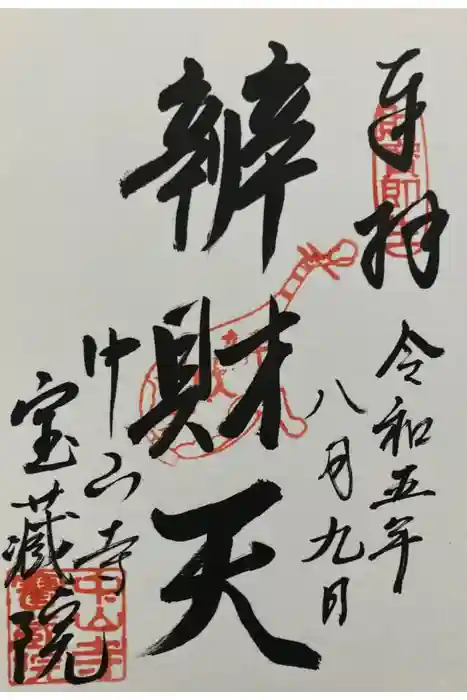 奉拝
令和五年
八月九日
辨財天
中山寺
宝蔵院
中山寺